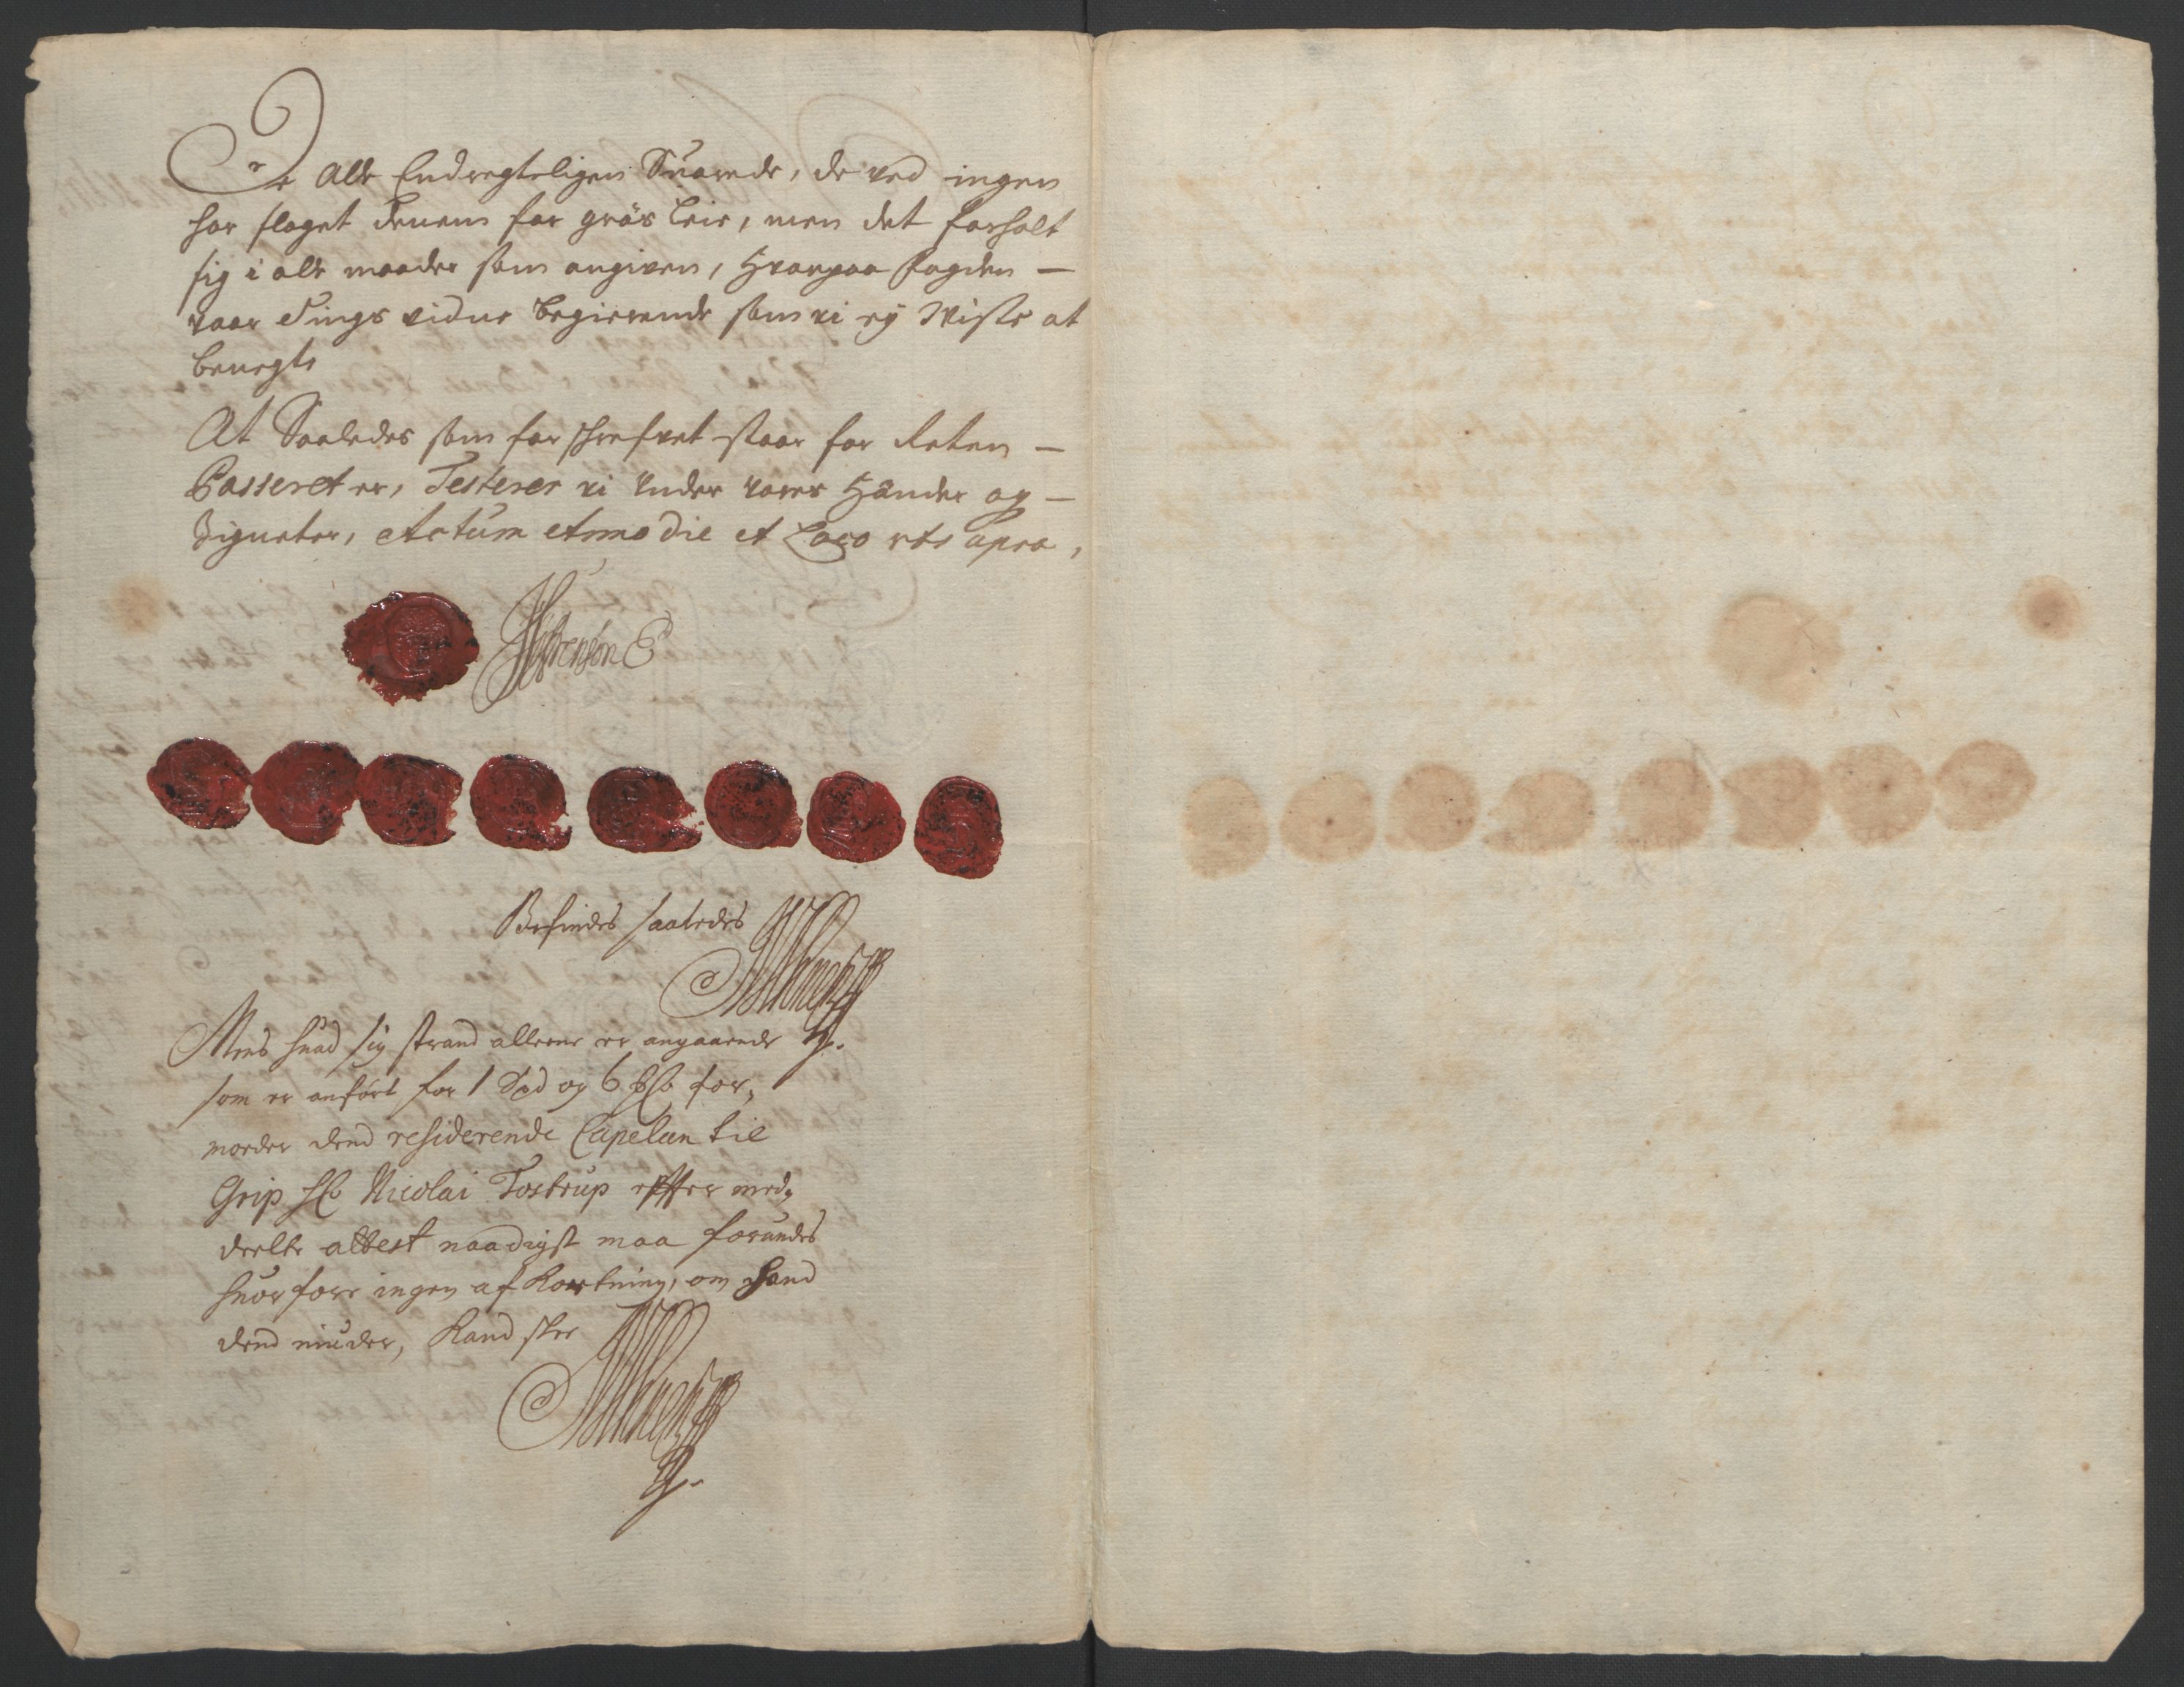 De Alle Endregteligen Suarede, de ved ingen
har slaget denem for gräs leie, men det forholt
sig i alle maader som angiven, Hvorpaa fogden —
vaar tings vidne begierende som vi ej Viste at
benegte
At Saaledes som for schrefvet staar for Reten —
Passeret er, Testerer vi under vores Händer og —
Signeter, Actum Anno die et Loco ut supra,
Befindes saaledes
Mens huad sig strand allene er angaaende
som er anført for 1 Spd og 6 for,
moeder dend residerende Capelan til
Grip Hr Nicolai Tostrup effter med,
deelte attest naadigst maa forundes
huorfore ingen afkortning, om hand
dend niuder, kand skee